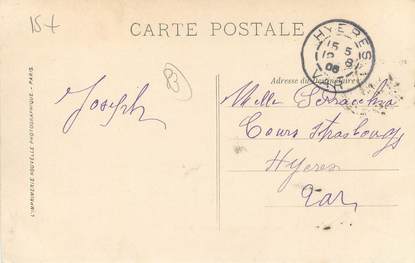 15 f
CARTE POSTALE
HYERES
15 5
08
VAR
83
Adresse du Destinataire
Joseph
Melle
Cours Strasbourg
Hyères
Var
L'IMPRIMERIE NOUVELLE PHOTOGRAPHIQUE - PARIS